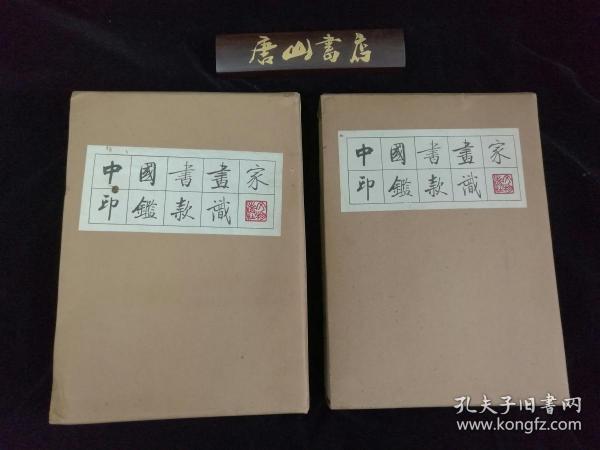 唐山書店
中國書畫家
印鑑款識
中國書畫家
印鑑款識
孔夫子旧書网
www.kongfz.com